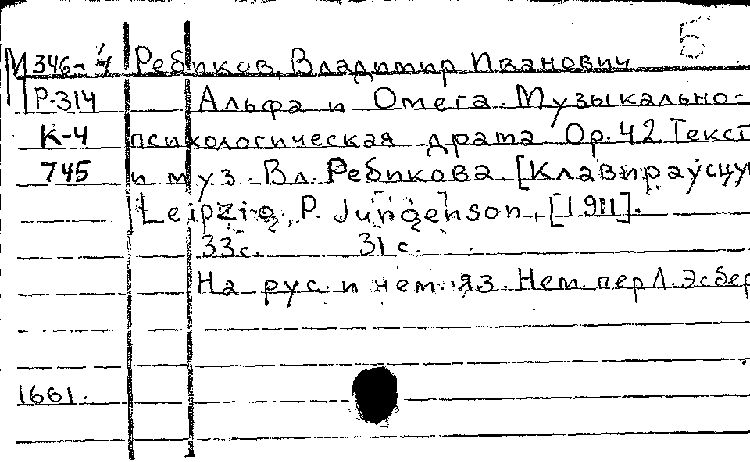 Б
М 346-4 Ребиков, Владимир Иванович
Р-314 Альфа и Омега. Музыкально-
К-4 психологическая драма Op. 42 Текст
745 и муз. Вл. Ребикова. [Клавираусцуг
Leipzig, P. Jurgenson, [1911].
33с. 31с.
На рус. и нем. яз. Нем. пер Л. Эсбер
1661.